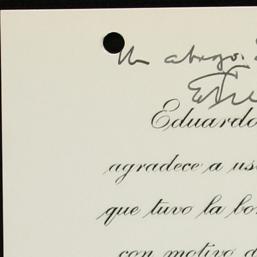 Un abrazo.
Eduardo
agradece a us
que tuvo la bo
con motivo d